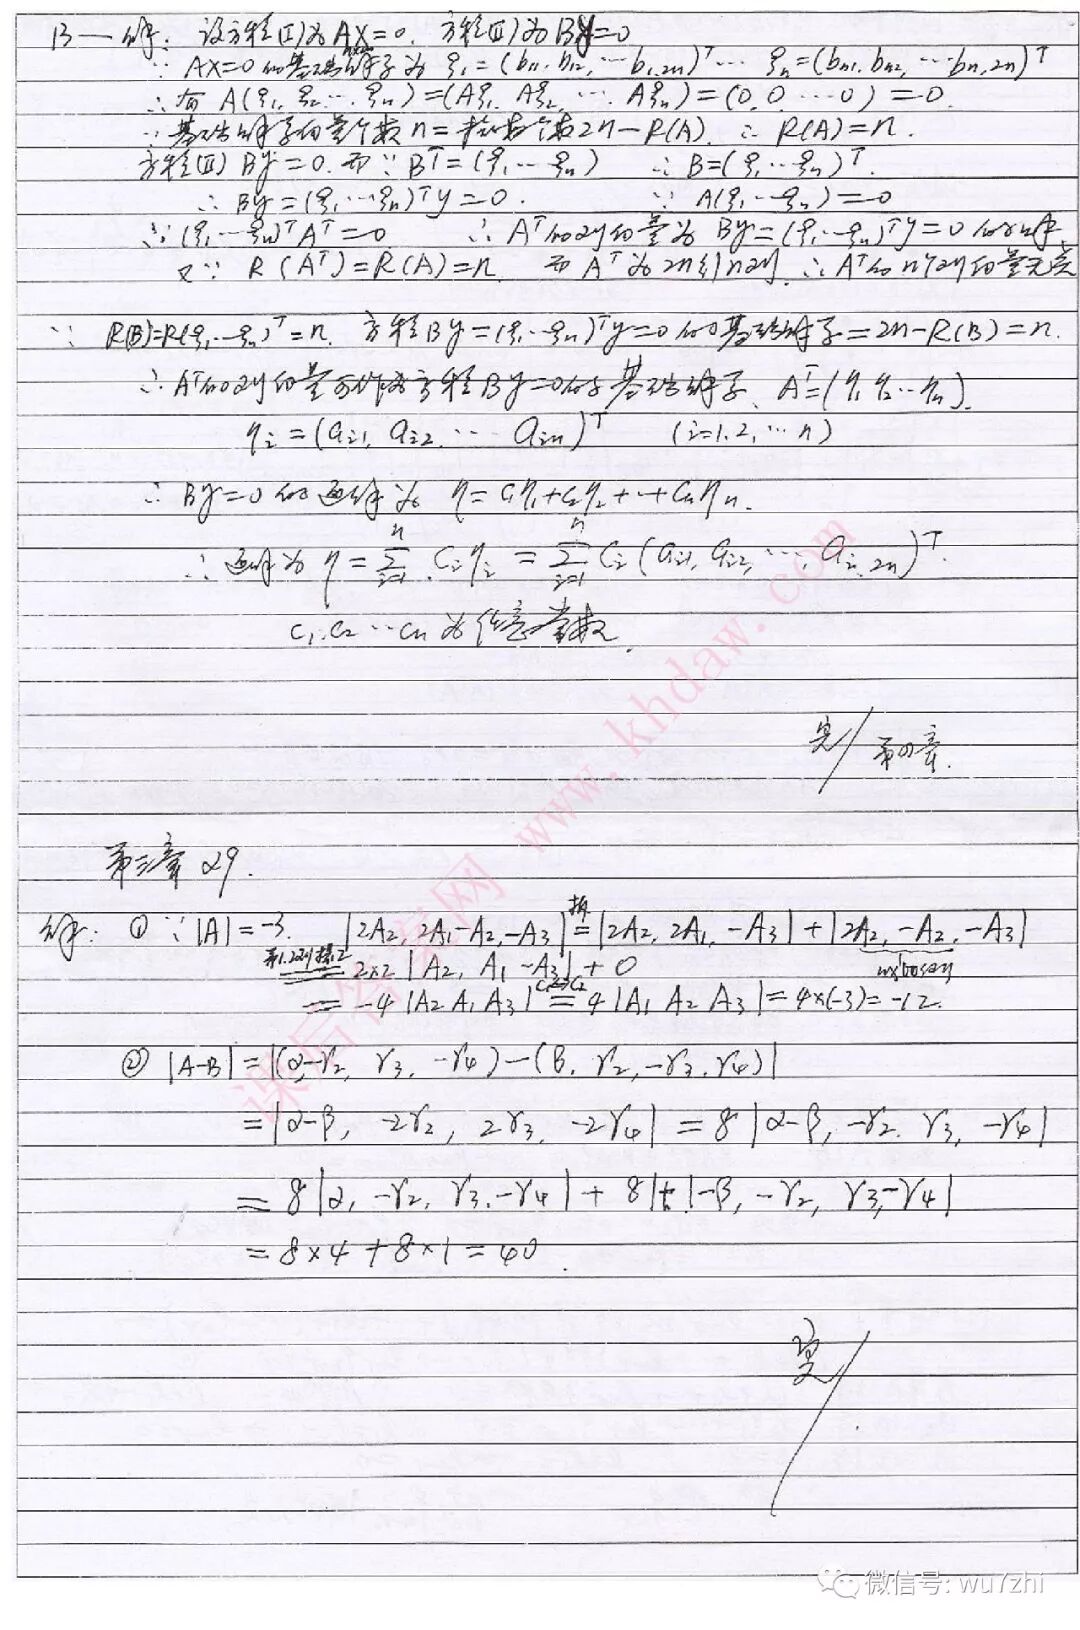 13一解: 设方程(I)为AX=0. 方程(II)为By=0
∵ AX=0的基础解系为 ξ₁=(b₁₁, b₁₂, …b₁,₂ₙ)ᵀ … ξₙ=(bₙ₁, bₙ₂, …bₙ,₂ₙ)ᵀ
∴有 A(ξ₁, ξ₂ … ξₙ)=(Aξ₁, Aξ₂, … Aξₙ)=(0, 0 … 0)=0.
∵基础解系向量个数n=未知数个数2n−R(A). ∴ R(A)=n.
方程(II) By=0. 而∵ Bᵀ=(ξ₁…ξₙ) ∴ B=(ξ₁…ξₙ)ᵀ.
∴ By=(ξ₁…ξₙ)ᵀy=0. ∵ A(ξ₁…ξₙ)=0
∴(ξ₁…ξₙ)ᵀAᵀ=0 ∴ Aᵀ的列向量为 By=(ξ₁…ξₙ)ᵀy=0的解
又∵ R(Aᵀ)=R(A)=n. 而Aᵀ为2n行n列. ∴Aᵀ的n个列向量无关
∵ R(B)=R(ξ₁…ξₙ)ᵀ=n. 方程By=(ξ₁…ξₙ)ᵀy=0的基础解系=2n−R(B)=n.
∴Aᵀ的列向量可作为方程By=0的基础解系. Aᵀ=(η₁ η₂…ηₙ).
ηᵢ=(aᵢ₁, aᵢ₂, … aᵢₙ)ᵀ (i=1.2, … n)
∴ By=0的通解为 η=c₁η₁+c₂η₂+…+cₙηₙ.
∴通解为 η=∑ⁿᵢ₌₁ Cᵢηᵢ=∑ⁿᵢ₌₁ Cᵢ(aᵢ₁, aᵢ₂, …, aᵢ,₂ₙ)ᵀ.
c₁.c₂…cₙ为任意常数.
完/第四章.
第三章 29.
解: ① ∵|A|=−3. |2A₂, 2A₁−A₂, −A₃| 拆= |2A₂, 2A₁, −A₃|+|2A₂, −A₂, −A₃|
第1.2列提2 = 2×2|A₂, A₁ −A₃|+0
=−4|A₂ A₁ A₃| C₁↔C₂ = 4|A₁ A₂ A₃|=4×(−3)=−12.
② |A−B|=|(α,−γ₂, γ₃, −γ₄)−(β, γ₂, −γ₃, γ₄)|
=|α−β, −2γ₂, 2γ₃, −2γ₄| = 8|α−β, −γ₂, γ₃, −γ₄|
= 8|α, −γ₂, γ₃, −γ₄| + 8|−β, −γ₂, γ₃,−γ₄|
=8×4+8×1=40.
完/
课后答案网 www.khdaw.com
微信号: wu7zhi